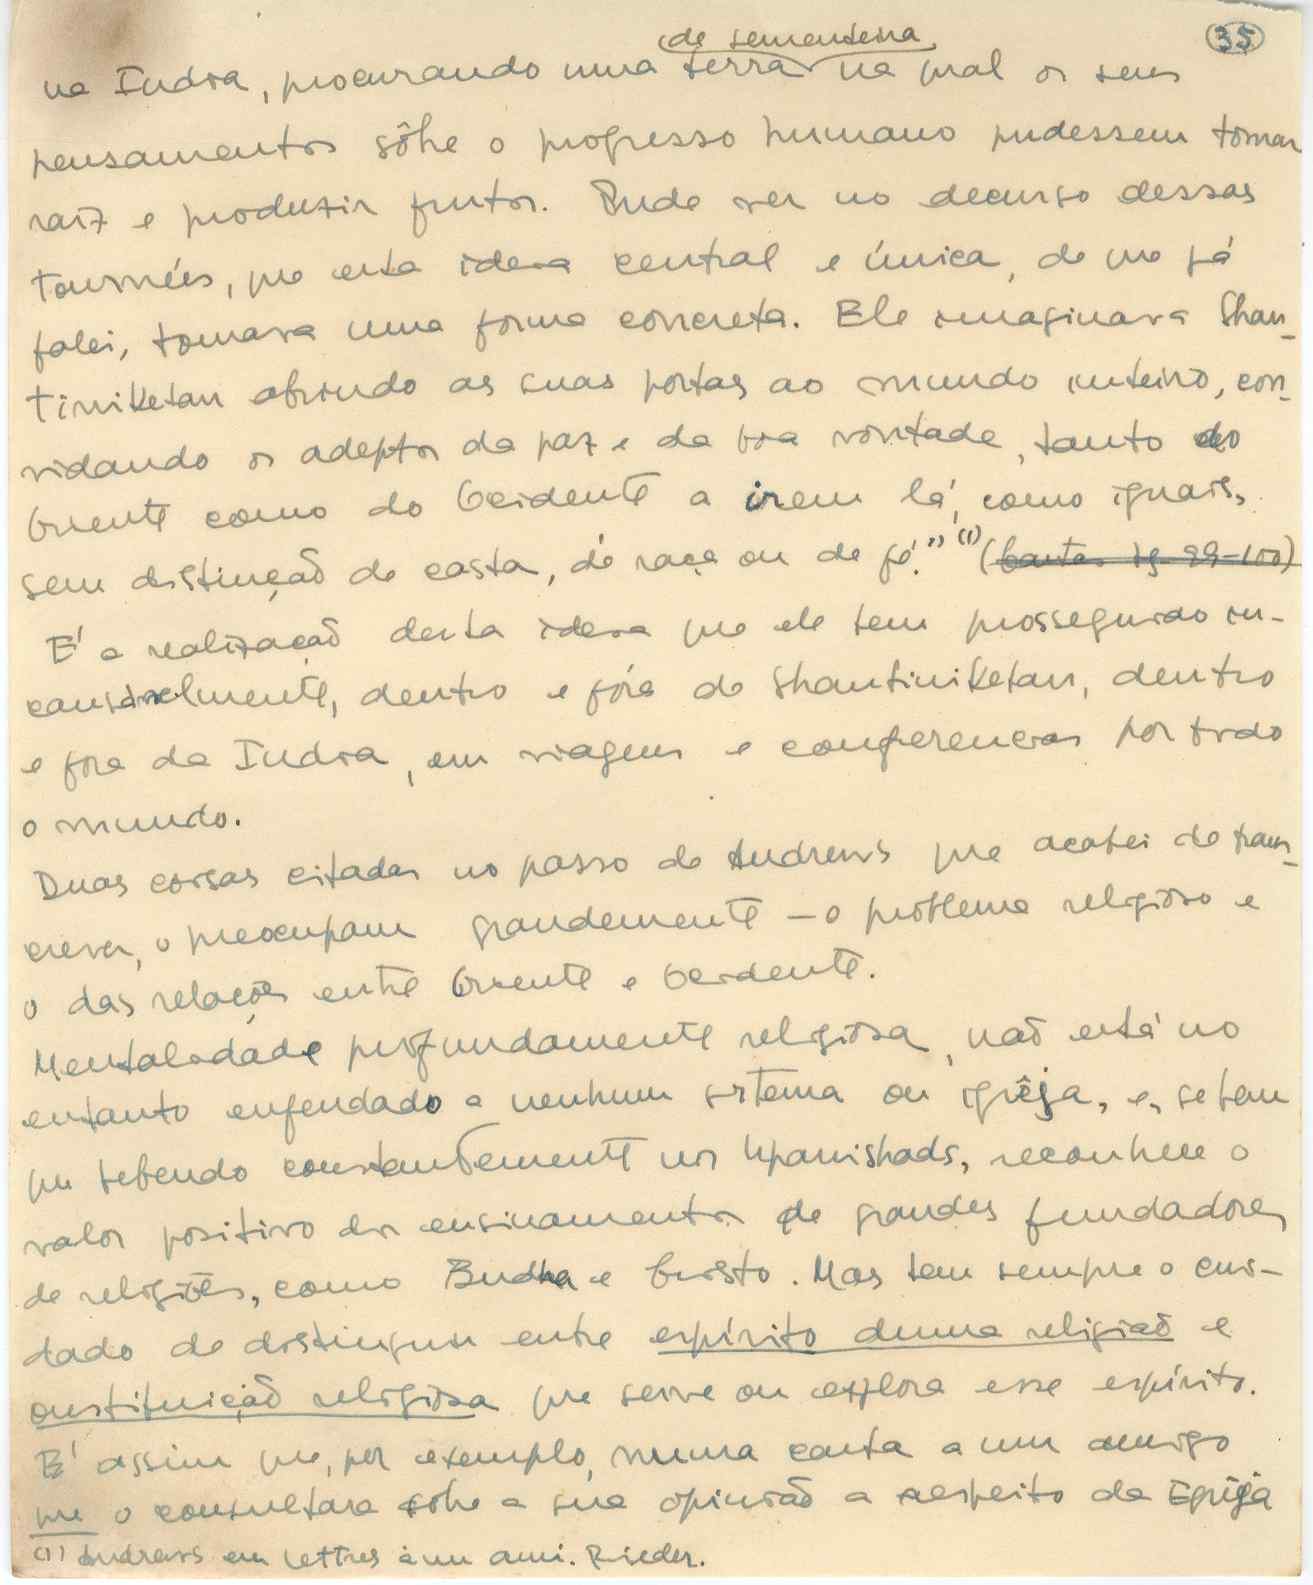 35
de sementeira
na India, procurando uma terra na qual os seus
pensamentos sôbre o progresso humano pudessem tomar
raiz e produzir frutos. Pude ver no decurso dessas
tournées, que esta ideia central e única, de que já
falei, tomava uma forma concreta. Ele imaginava Shan-
tiniketan abrindo as suas portas ao mundo inteiro, con-
vidando os adeptos da paz e da boa vontade, tanto do
Oriente como do Ocidente a irem lá, como iguais,
sem distinção de casta, de raça ou de fé." (1) (Cartas pg. 99-100)
É a realização desta ideia que ele tem prosseguido in-
cansávelmente, dentro e fóra de Shantiniketan, dentro
e fora da India, em viagens e conferencias por todo
o mundo.
Duas coisas citadas no passo de Andrews que acabei de trans-
crever, o preocupam grandemente — o problema religioso e
o das relações entre Oriente e Ocidente.
Mentalidade profundamente religiosa, não está no
entanto enfeudado a nenhum sistema ou igrêja, e, se tem
que bebendo constantemente nos Upanishads, reconhece o
valor positivo dos ensinamentos de grandes fundadores
de religiões, como Budha e Cristo. Mas tem sempre o cui-
dado de distinguir entre espírito duma religião e
instituição religiosa que serve ou explora esse espírito.
É assim que, por exemplo, numa carta a um amigo
que o consultara sôbre a sua opinião a respeito da Egrêja
(1) Andrews em Lettres à un ami. Rieder.